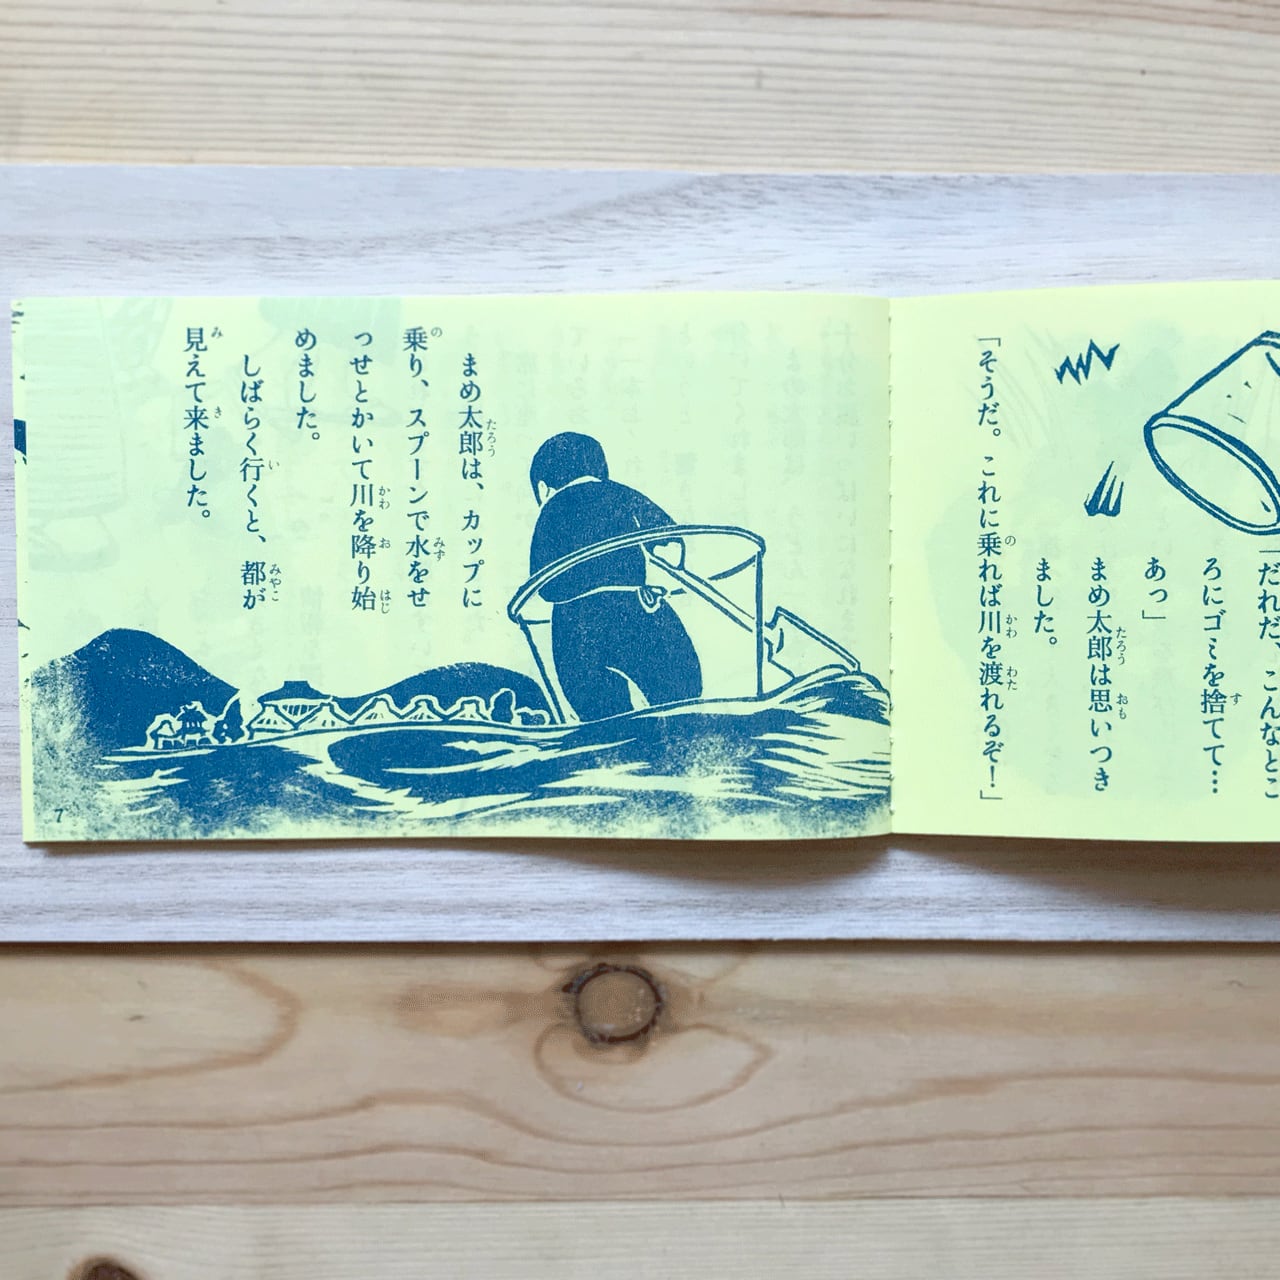 「だれだ、こんなとこ
ろにゴミを捨てて…
あっ」
まめ太郎は思いつき
ました。
「そうだ。これに乗れば川を渡れるぞ！」
まめ太郎は、カップに
乗り、スプーンで水をせ
っせとかいて川を降り始
めました。
しばらく行くと、都が
見えて来ました。
7